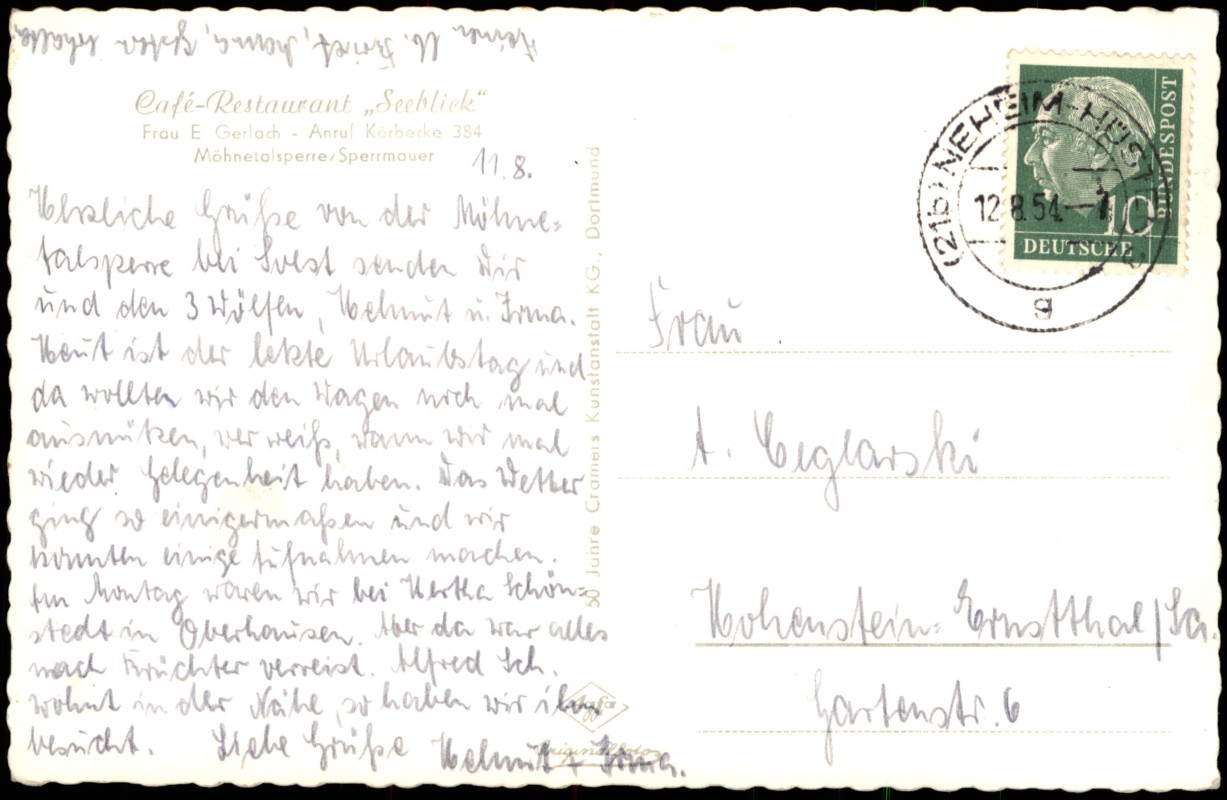 Café-Restaurant „Seeblick"
Frau E. Gerlach - Anruf Körbecke 384
Möhnetalsperre/Sperrmauer
11.8.
Herzliche Grüße von der Möhne-
talsperre bei Soest senden Dir
und den 3 Wölfen, Helmut u. Irma.
Heut ist der letzte Urlaubstag und
da wollten wir den Wagen noch mal
ausnützen, wer weiß, wann wir mal
wieder Gelegenheit haben. Das Wetter
ging so einigermaßen und wir
konnten einige Aufnahmen machen.
Am Montag waren wir bei Hertha Schön-
stedt in Oberhausen. Aber da war alles
nach verreist. Alfred Sch.
wohnt in der Nähe, so haben wir ihn
besucht. Liebe Grüße Helmut + Irma.
Deinen lb. Brief, Mama, gestern erhalten
50 Jahre Cramers Kunstanstalt KG., Dortmund
Agfa
Originalfoto
(21b) NEHEIM-HÜSTEN
12.8.54
g
DEUTSCHE
BUNDESPOST
10
Frau
A. Ceglarski
Hohenstein-Ernstthal/Sa.
Gartenstr. 6